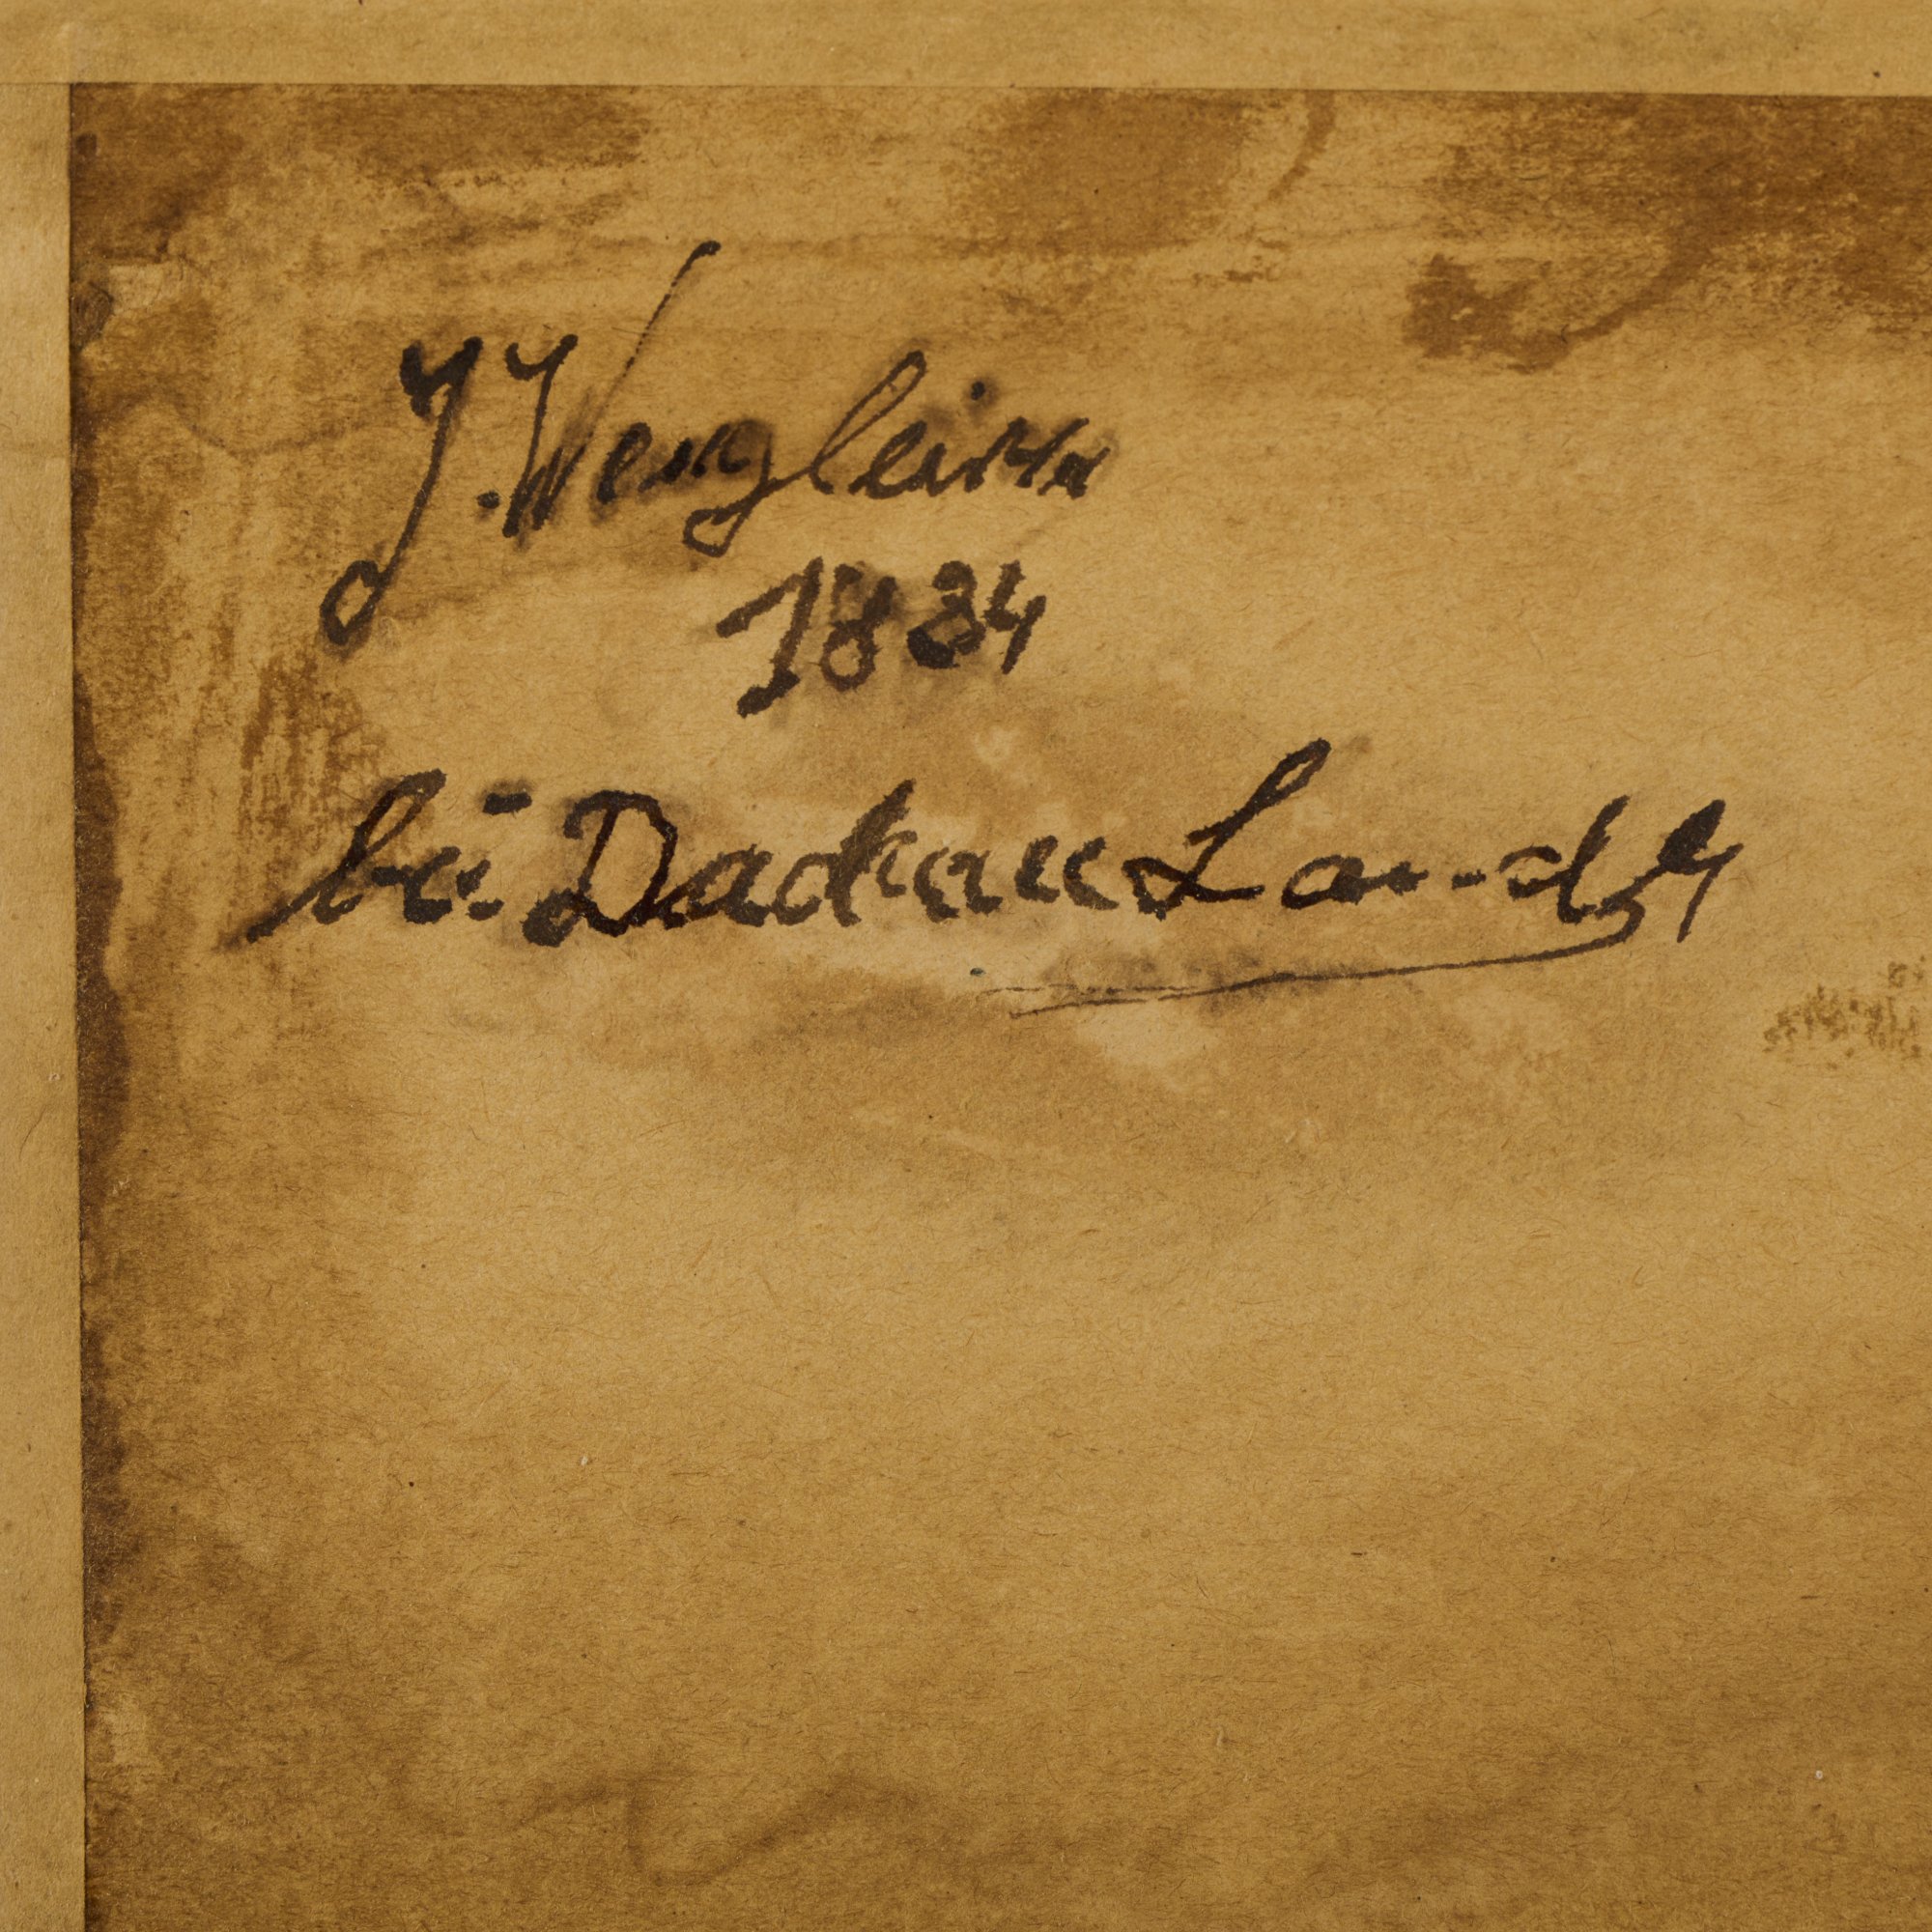 J. Wenglein
1834
bei Dachau Landsch